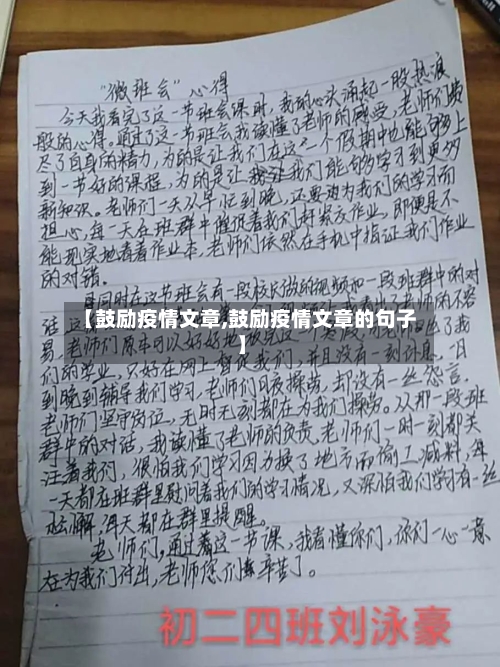 "微班会"心得
今天我看完了这一节班会课时，我的心头涌起一股热浪
般的心得。通过了这一节班会我读懂了老师的感受，老师们费
尽了自身的精力，为的是让我们在这一个假期中也能够上
到一节好的课程，为的是让我让我们能够学习到更多的
新知识。老师们一天从早忙到晚，还要边为我们的学习而
担心，每一天在班群中催促着我们赶紧交作业，即便是不
能现实地看着作业本，老师们依然在手机中指证我们作业
的对错。
再同时在这节班会有一段校长做的视频和一段班群中的对
让我看出了老师的不容
【鼓励疫情文章,鼓励疫情文章的句子
】
易。老师们原本可以好好地
们的学业，只好在网上督促我们，并且没有一刻休息，一日
到晚到辅导我们学习，老师们日夜操劳，却没有一丝怨言，
老师们坚守岗位，无时无刻都在为我们操劳。从那一段班
群中的对话，我读懂了老师的负责，老师们一时一刻都关
注着我们，很怕我们学习因为换了地方而偷工减料，每
一天都在班群里慰问着我们的学习情况，又深怕我们学习有一丝
松懈，每天都在群里提醒。
老师们，通过着这一节课，我看懂你们，你们一心一意
在为我们付出，老师您们辛苦了。
初二四班刘泳豪